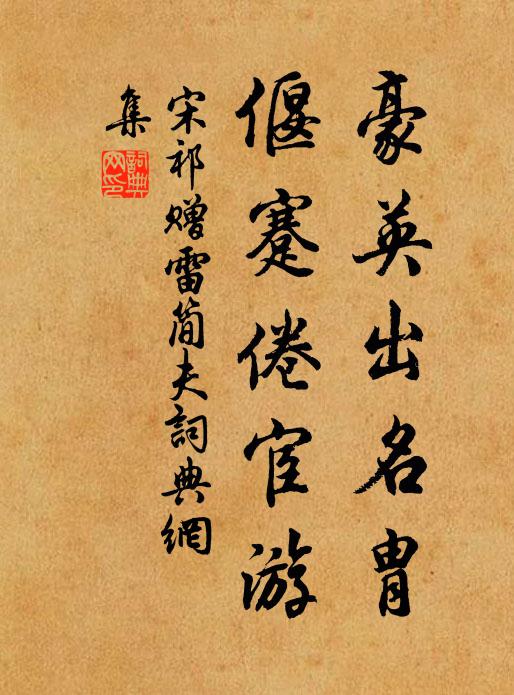 豪英出名胄
偃蹇倦宦游
宋祁赠雷简夫詞典網
集
詞典
网印